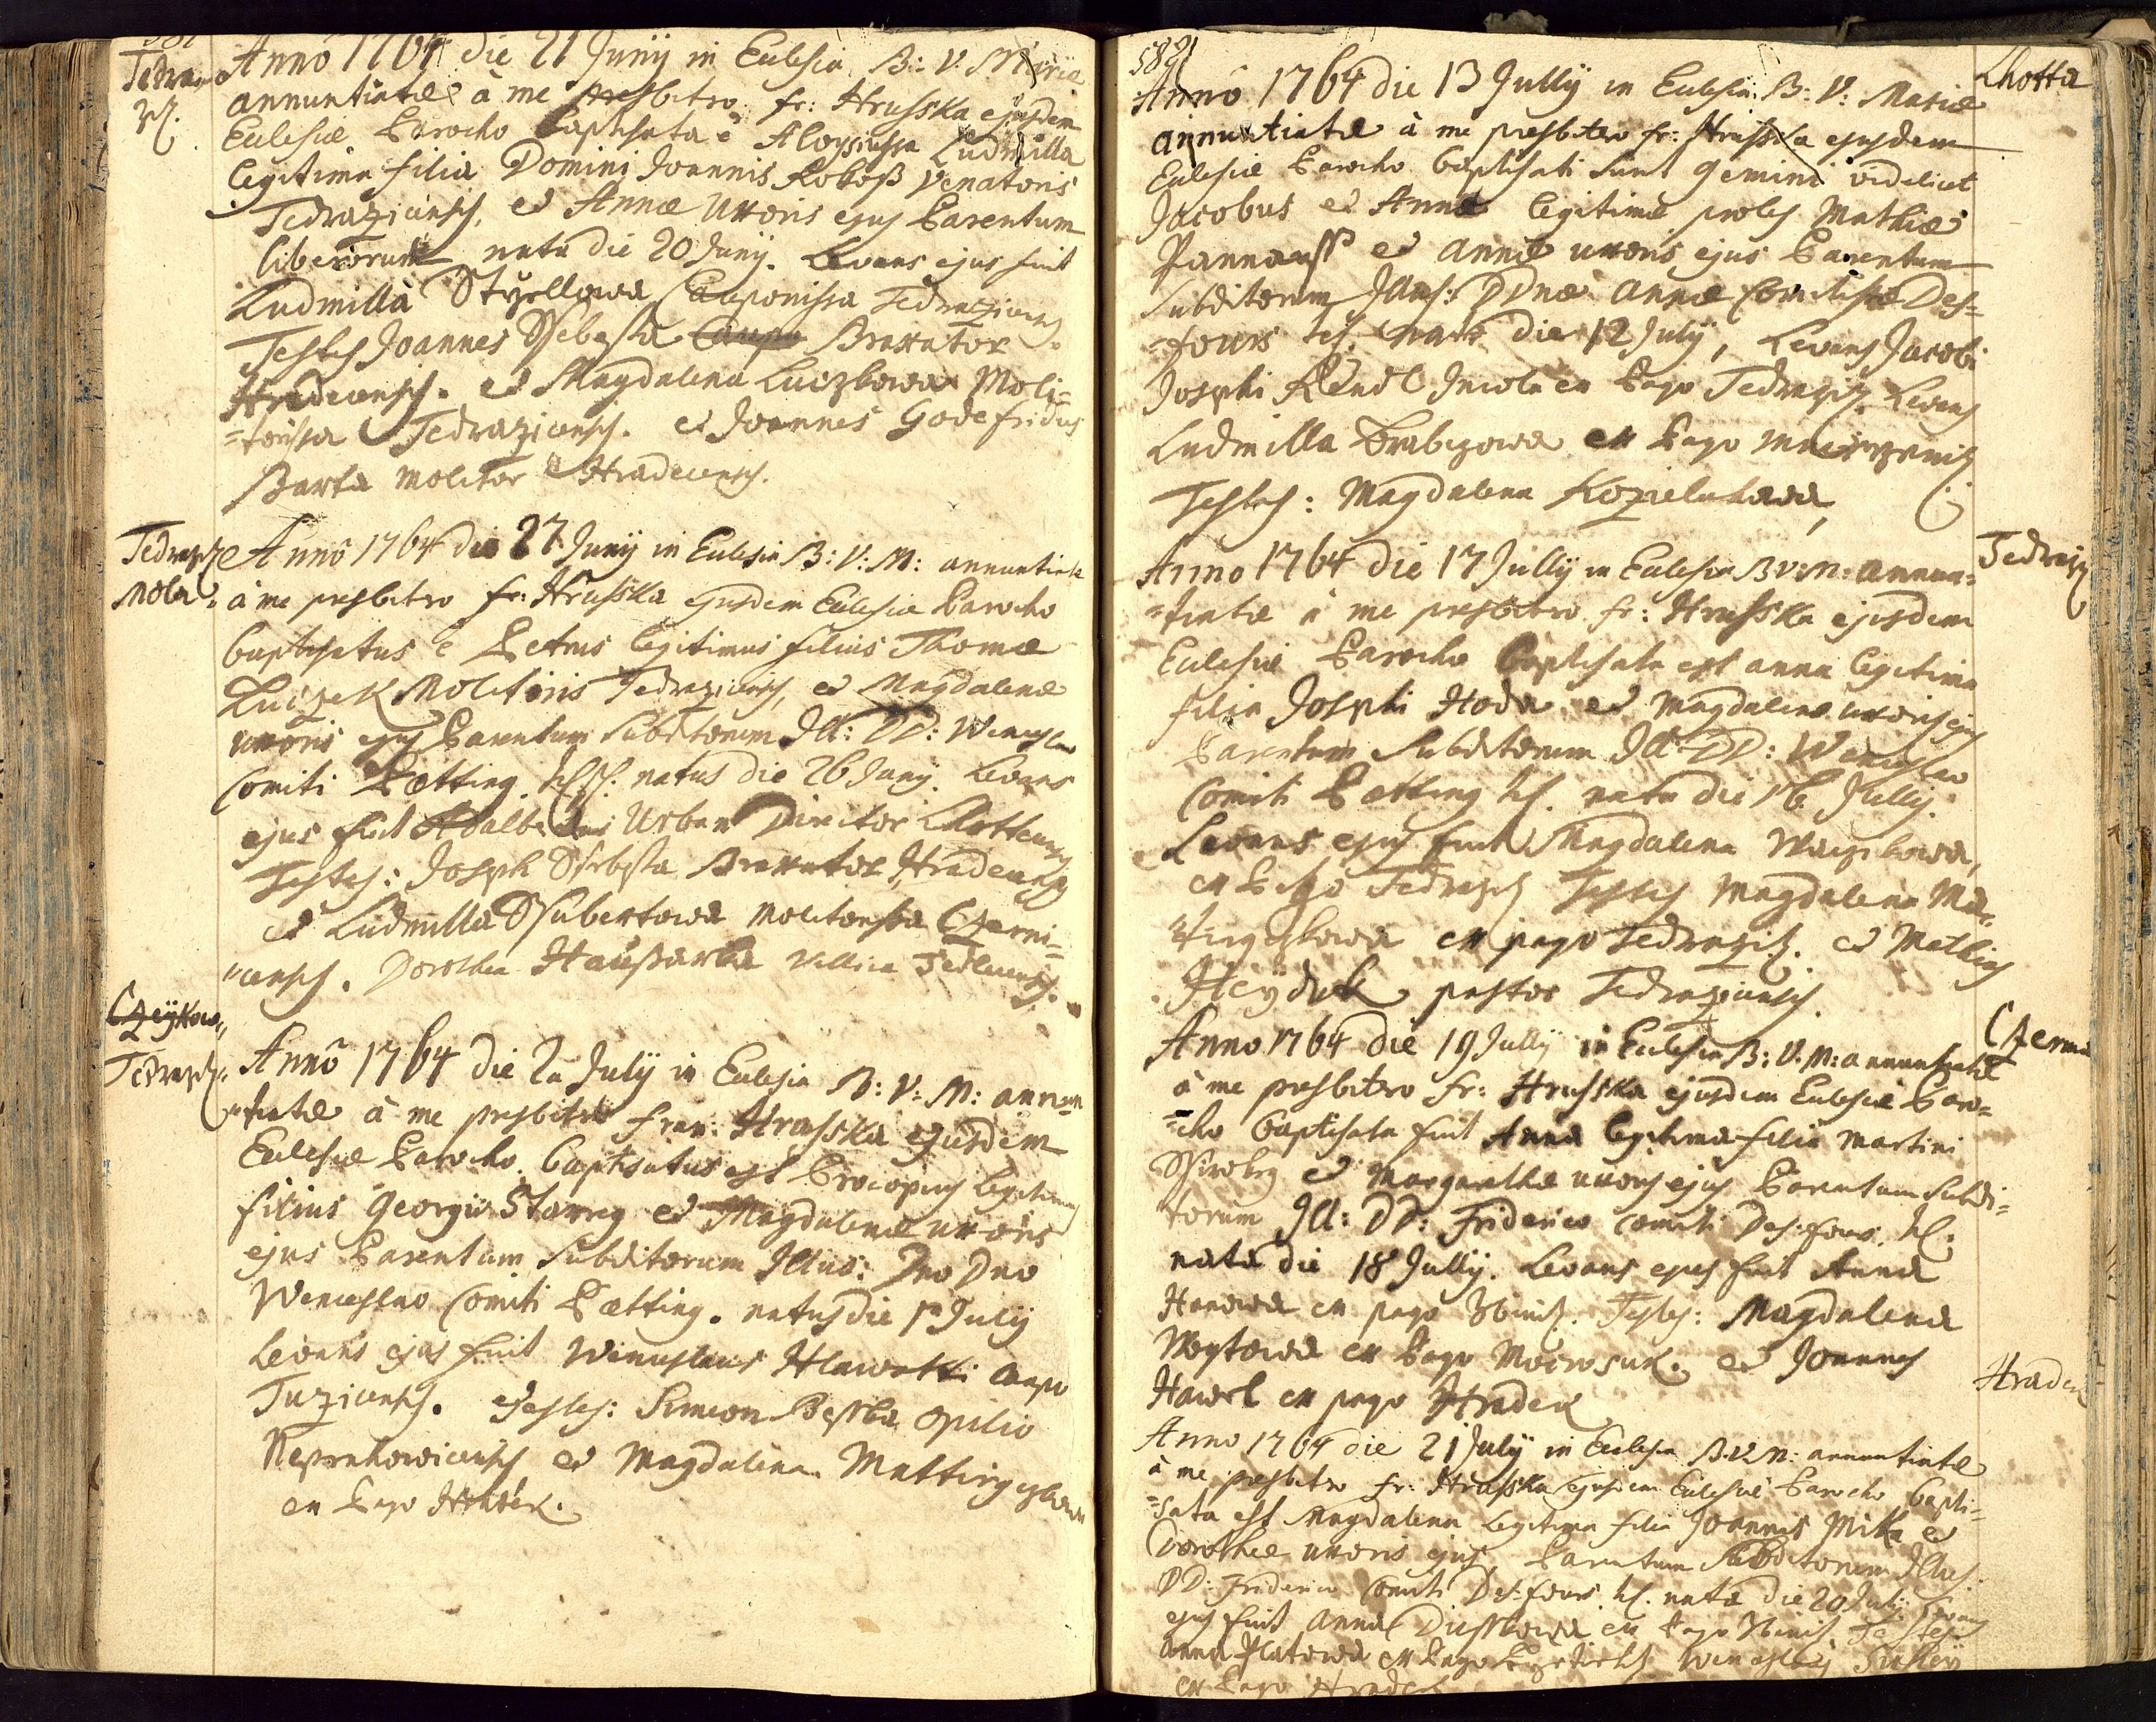 581
Tedraz
Anno 1764 die 21 Junij in Eulesia B: V: Mariæ
annuntiatæ à me presbitro fr: Hrusska ejusdem
Eulesiæ Parocho baptisata è Aloysiussa Ludmilla
legitima filia Domini Joannis Kokoß Venatoris
Tedrazicensis, et Annæ Uxoris ejus Parentum
liberorum nata die 20 Junij. Levans ejus fuit
Ludmilla Styrllowa Cauponissa Tedrazicensis.
Testes Joannes Ssebesta Caupo Braxator
Hradecensis. et Magdalena Luczkowa Moli=
=torissa Tedrazicensis. et Joannes Godefridus
Barta Molitor Hradecensis.
Tedrazicz
Mola.
Anno 1764 die 27 Junij in Eulesia B: V: M: annuntiatæ
à me presbitro fr: Hrusska ejusdem Eulesiæ Parocho
baptisatus è Petrus legitimus filius Thomæ
Luczek Molitoris Tedrazicensis, et Magdalenæ
uxoris ejus Parentum Subditorum Ill: DD: Wenceslao
Comiti Pætting. natus die 26 Junij. Levans
ejus fuit Adalbertus Urban Director Lhottensis
Testes: Joseph Ssebesta Braxator Hradecensis
et Ludmilla Ssubertowa Molitorissa Czerni=
=censis. Dorothea Haußarka Villica
Czeÿkow
Tedrazicz.
Anno 1764 die 2a Julij in Eulesia B: V: M: annun=
=tiatæ à me presbitro Fran: Hrusska ejusdem
Eulesiæ Parocho. baptisatus est Procopius legitimus
filius Georgii Starreg et Magdalenæ uxoris
ejus Parentum Subditorum Illus: Dno Dno
Wenceslao Comiti Pætting. natus die 1a Julij
Levans ejus fuit Wenceslaus Hlawatti caupo
Tuzicensis. Testes: Simeon Besstka opilio
Neprachowicensis et Magdalena
ex Pago Hradek.
582
Lhotta
Anno 1764 die 13 Jullij in Eulesia B: V: Mariæ
annuntiatæ à me presbitro fr: Hrusska ejusdem
Eulesiæ Parocho baptisati sunt Gemini videlicet
Jacobus et Anna legitimæ proles Mathiæ
Pannauss et Annæ uxoris ejus Parentum
subditorum Illus: DDnæ Annæ Comitissæ Des=
=fours nati die 12 July, Levans Jacobi
Josephi Rendl Incola ex Pago Tedrazicz. Levans
Ludmilla Brabczowa ex Pago
Testes: Magdalena Kozieluhowa,
Tedrazicz
Anno 1764 die 17 Jullij in Eulesia B: V: M: annun=
=tiatæ à me presbitro fr: Hrusska ejusdem
Eulesiæ Parocho baptisata est Anna legitima
filia Josephi Hoda et Magdalenæ uxoris ejus
Parentum Subditorum Ill: DD: Wenceslao
Comiti Pætting nata die 16 Jullij.
Levans ejus fuit Magdalena Waczkowa,
ex Pago Tedrazicz Testes Magdalena
ex pago Tedrazicz. et Mathias
Heÿduk pastor Tedrazicensis.
Czerma
Anno 1764 die 19 Jullij in Eulesia B: V: M: annuntiatæ
à me presbitro fr: Hrusska ejusdem Eulesiæ Paro=
=cho baptisata fuit Anna legitima filia Martini
et Margarethæ uxoris ejus Parentum Subdi=
torum Ill: DD: Friderico Comiti Des-fours.
nata die 18 Jullij. Levans ejus fuit Anna
Hanowa ex pago Zbinicz. Testes: Magdalena
Woytowa ex Pago Mocrosuk. et Joannes
Hawel ex pago Hradek
Hradek
Anno 1764 die 21 Julij in Eulesia B. V. M: annuntiatæ
à me presbitro fr: Hrusska ejusdem Eulesiæ Parocho bapti=
=sata est Magdalena legitima filia Joannis Mika et
Dorotheæ uxoris ejus, Parentum Subditorum Illus:
DD: Friderico Comiti Des-fours. nata die 20 Julij Levans
ejus fuit Anna Dussowa ex Pago Zbinicz Testes
Anna Platowa ex Pago Wenceslaus
ex Pago Hradek